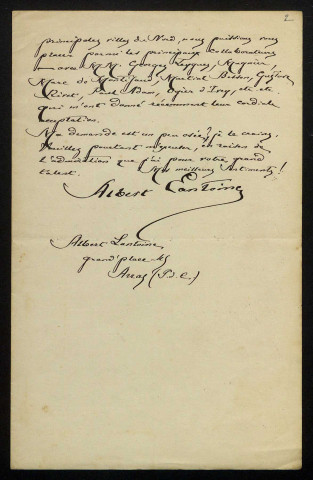 2
principales villes du Nord, nous puissions vous
placer parmi les principaux collaborateurs
avec MM. Georges
Marc de Montifaud, Martial Besson, Gustave
Rivet, Paul Adam, Ogier d'Ivry, etc. etc.
qui m'ont donné récemment leur cordiale
acceptation.
Ma demande est un peu osée, je le crains.
Veuillez pourtant m'excuser, en raison de
l'admiration que j'ai pour votre grand
talent. Mes meilleurs sentiments!
Albert Lantoine
Albert Lantoine,
grand'place
Arras (P.d.C.)